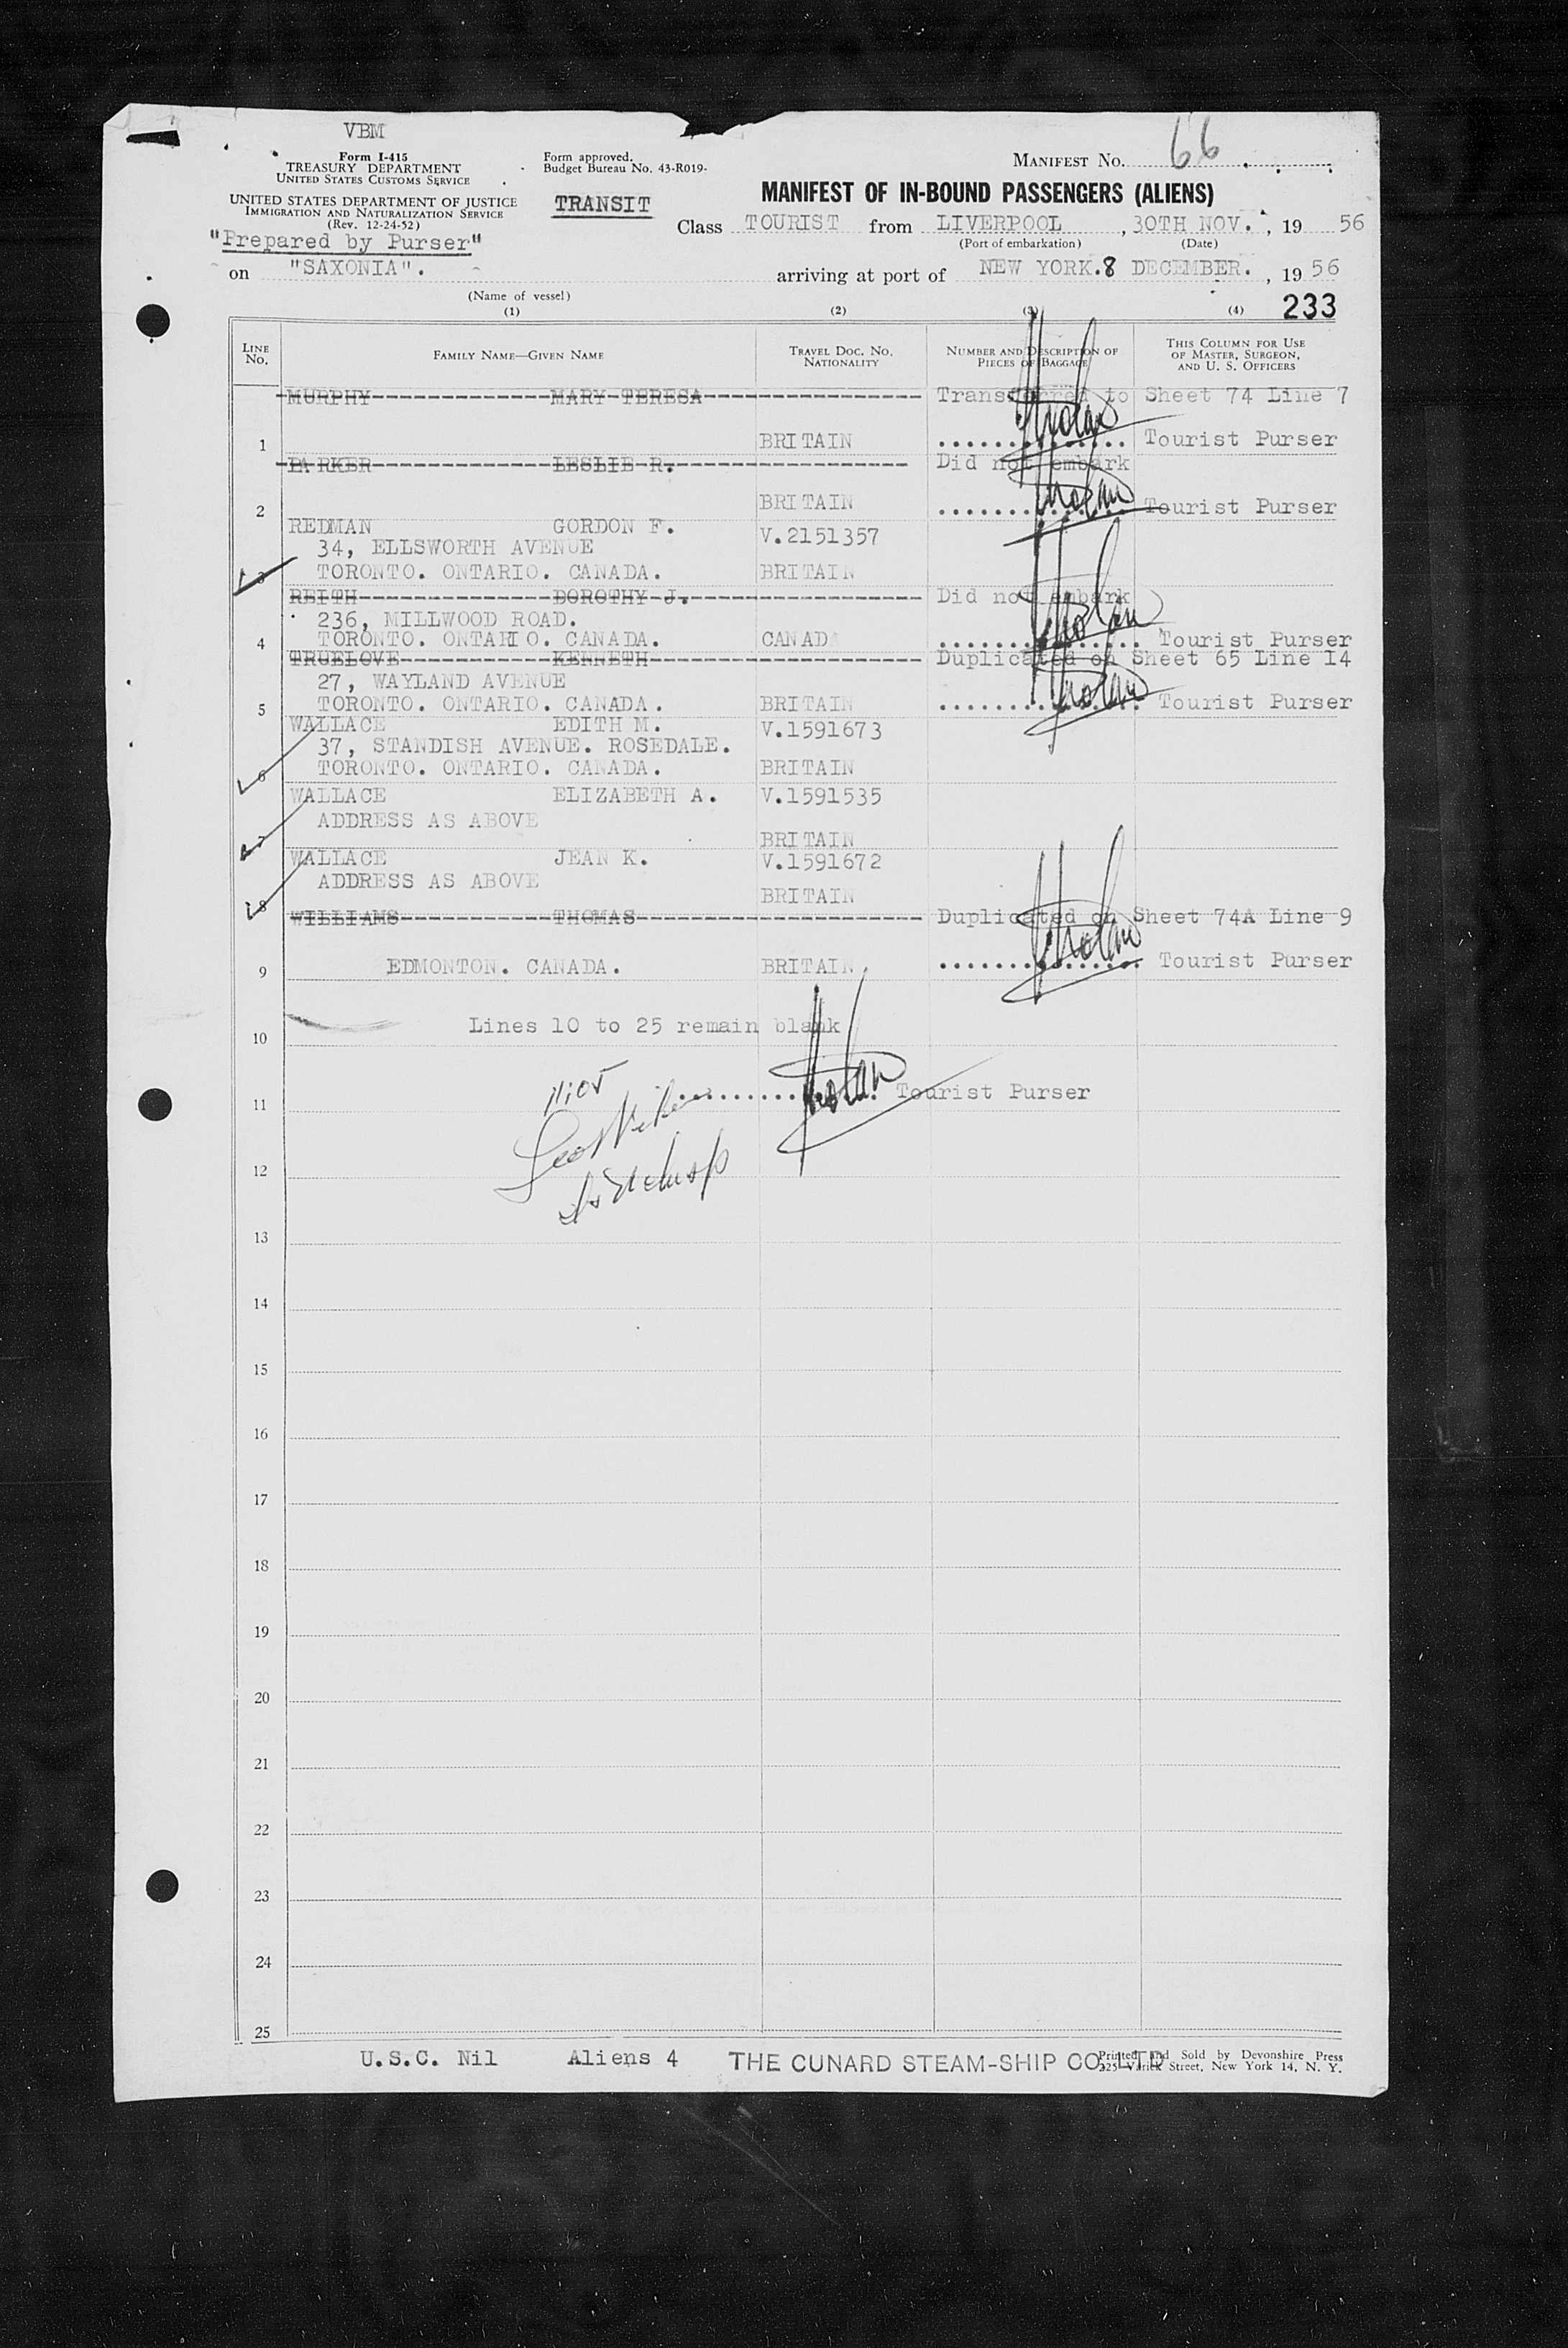 VBM
Form I-415
TREASURY DEPARTMENT
UNITED STATES CUSTOMS SERVICE
UNITED STATES DEPARTMENT OF JUSTICE
IMMIGRATION AND NATURALIZATION SERVICE
(Rev. 12-24-52)
"Prepared by Purser"
Form approved.
Budget Bureau No. 43-R019-
TRANSIT
MANIFEST NO. 66
MANIFEST OF IN-BOUND PASSENGERS (ALIENS)
Class TOURIST from LIVERPOOL, 30TH NOV., 19 56
(Port of embarkation) (Date)
on "SAXONIA". arriving at port of NEW YORK. 8 DECEMBER., 19 56
(Name of vessel)
233
(1) (2) (3) (4)
LINE NO. FAMILY NAME—GIVEN NAME TRAVEL DOC. NO. NATIONALITY NUMBER AND DESCRIPTION OF PIECES OF BAGGAGE THIS COLUMN FOR USE OF MASTER, SURGEON, AND U. S. OFFICERS
MURPHY MARY TERESA Transferred to Sheet 74 Line 7
1 BRITAIN Tourist Purser
PARKER LESLIE R. Did not embark
2 BRITAIN Tourist Purser
REDMAN GORDON F. V.2151357
34, ELLSWORTH AVENUE
3 TORONTO. ONTARIO. CANADA. BRITAIN
REITH DOROTHY J. Did not embark
236, MILLWOOD ROAD.
4 TORONTO. ONTARIO. CANADA. CANADA Tourist Purser
TRUELOVE KENNETH Duplicated on Sheet 65 Line I4
27, WAYLAND AVENUE
5 TORONTO. ONTARIO. CANADA. BRITAIN Tourist Purser
WALLACE EDITH M. V.1591673
37, STANDISH AVENUE. ROSEDALE.
6 TORONTO. ONTARIO. CANADA. BRITAIN
WALLACE ELIZABETH A. V.1591535
ADDRESS AS ABOVE
7 BRITAIN
WALLACE JEAN K. V.1591672
ADDRESS AS ABOVE
8 BRITAIN
WILLIAMS THOMAS Duplicated on Sheet 74A Line 9
9 EDMONTON. CANADA. BRITAIN Tourist Purser
Lines 10 to 25 remain blank
10
11 Tourist Purser
12
13
14
15
16
17
18
19
20
21
22
23
24
25
U.S.C. Nil Aliens 4 THE CUNARD STEAM-SHIP CO. LTD
Printed and Sold by Devonshire Press
225 Varick Street, New York 14, N. Y.